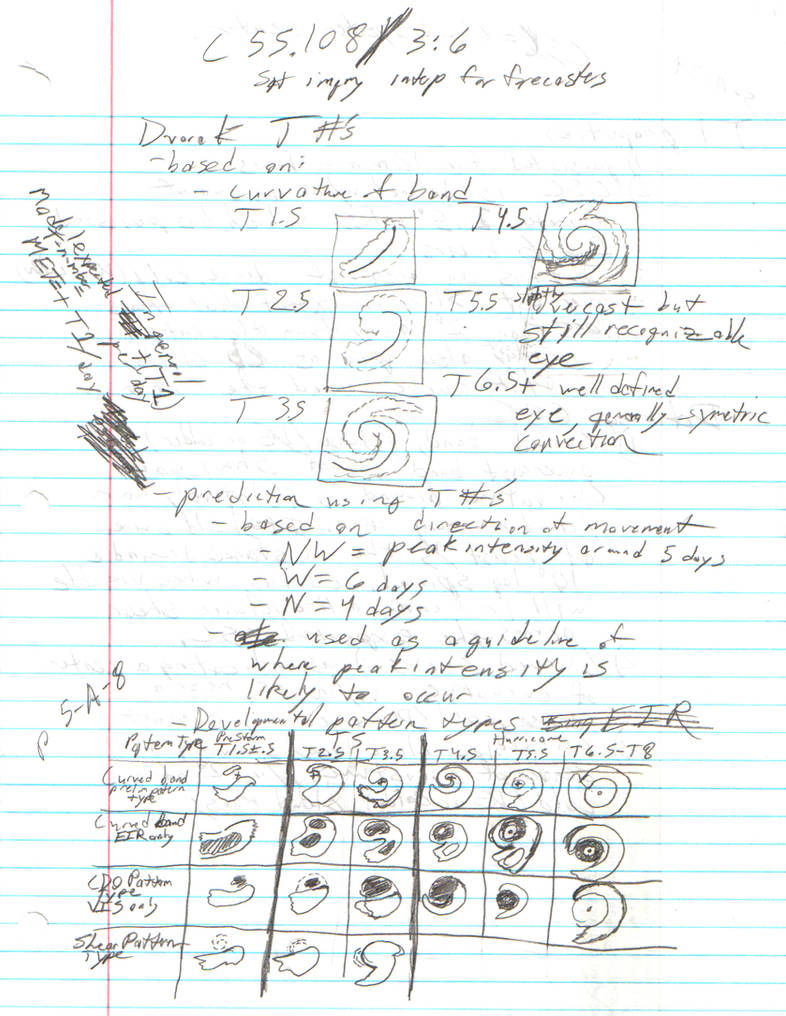 C 55.108 / 3:6
Sat imgry interp for forecasters
Dvorak T #'s
- based on:
- curvature of band
T 1.5
T 4.5
T 2.5
T 5.5 slightly overcast but
still recognizable
eye
T 6.5+ well defined
eye, generally symetric
convection
T 3.5
model expected
T-number =
MET + T1/day
In general
+ (T1
per day)
- prediction using T #'s
- based on direction of movement
- NW = peak intensity around 5 days
- W = 6 days
- N = 4 days
- used as a guideline of
where peak intensity is
likely to occur
P 5-A-8
- Developmental pattern types using EIR
Pattern Type
PreStorm
T1.5±.5
TS
T2.5
T3.5
Hurricane
T4.5
T5.5
T6.5-T8
Curved band
prelim pattern
type
Curved band
EIR only
CDO Pattern
Type
VIS only
Shear Pattern
Type